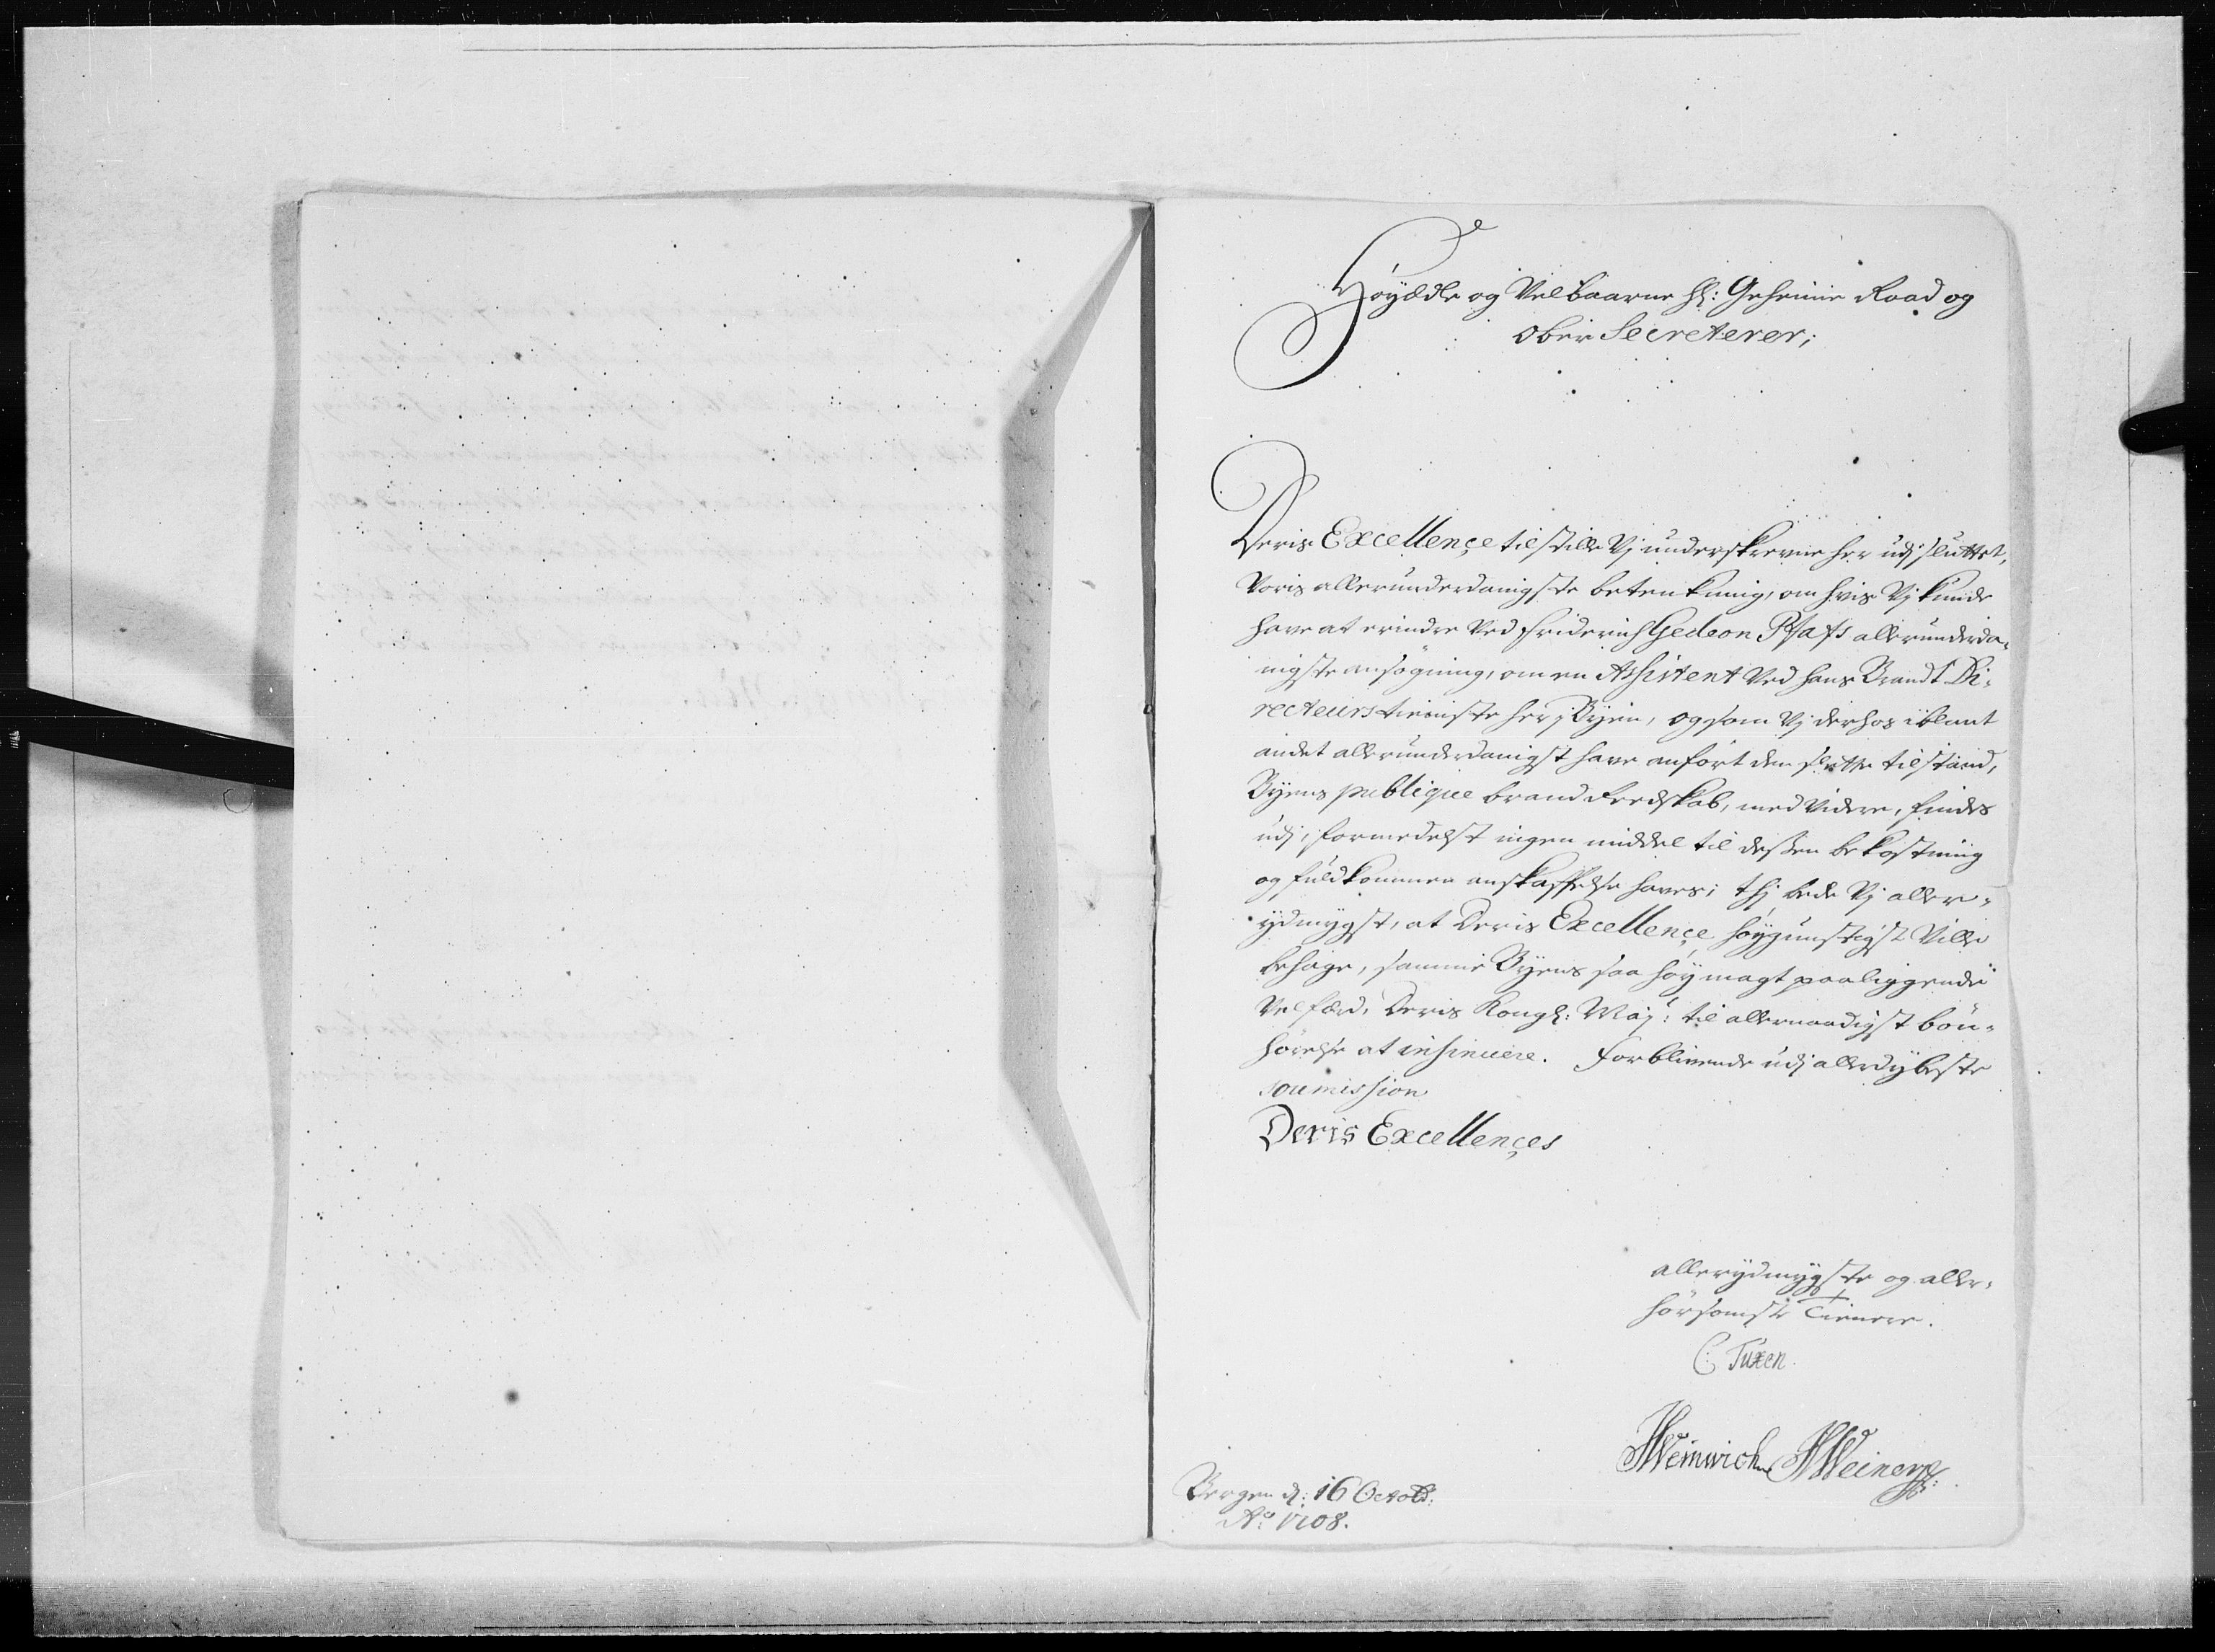 Høyædle og Velbaarne Hr: Geheime Raad og
Ober Secreterer;
Deris Excellençe tilstille Vj underskrevne her udj sluttet,
Voris allerunderdanigste betenkning, om hvis Vj kunde
have at erindre Ved Friderich Gedeon Pfafs allerunderda-
nigste ansøgning, om en Assistent Ved hans Brandt Di-
recteurs tieniste her j Byen, og som Vj derhos iblant
andet allerunderdanigst have anført den slette tilstand,
Byens publique brand Reedskab, med Videre, findes
udj, formedelst ingen middel til dessen bekostning
og fuldkommen anskaffelse haves; thj bede Vj aller-
ydmygst, at Deris Excellençe høygunstigst Ville
behage, samme Byens saa høy magt paaliggende
Velfærd, Deris Kongl: Maj:t til allernaadigst bøn-
hørelse at insinuere. Forblivende udj allerdybeste
soumission
Deris Excellençes
allerydmygste og aller-
hørsomste Tienere.
C: Tuxen.
HWeinwich HWeiner
Bergen d: 16 Octob:
Ao 1708.